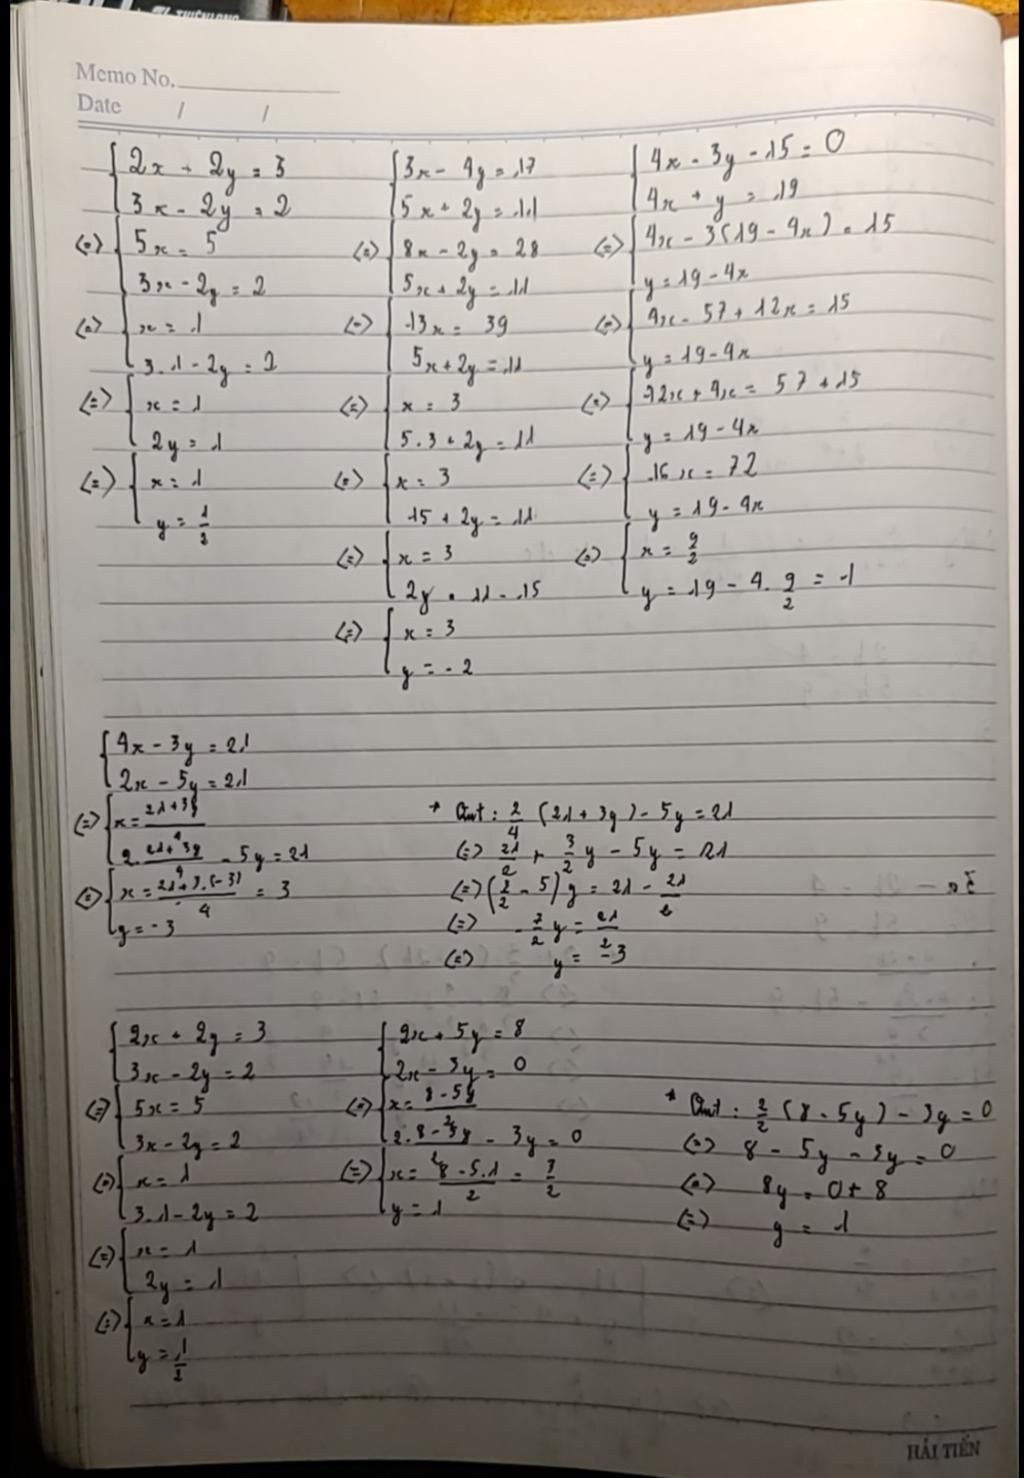 THIÊN LONG
Memo No.
Date / /
{ 2x + 2y = 3
3x - 2y = 2
(=) { 5x = 5
3x - 2y = 2
(=) { x = 1
3.1 - 2y = 2
(=) { x = 1
2y = 1
(=) { x = 1
y = 1/2
{ 3x - 4y = 17
5x + 2y = 11
(=) { 8x - 2y = 28
5x + 2y = 11
(=) { 13x = 39
5x + 2y = 11
(=) { x = 3
5.3 + 2y = 11
(=) { x = 3
15 + 2y = 11
(=) { x = 3
2y = 11 - 15
(=) { x = 3
y = -2
{ 4x - 3y - 15 = 0
4x + y = 19
(=) { 4x - 3(19 - 4x) = 15
y = 19 - 4x
(=) { 4x - 57 + 12x = 15
y = 19 - 4x
(=) { 12x + 4x = 57 + 15
y = 19 - 4x
(=) { 16x = 72
y = 19 - 4x
(=) { x = 9/2
y = 19 - 4. 9/2 = -1
{ 4x - 3y = 21
2x - 5y = 21
(=) { x = 21 + 3y / 4
2. 21 + 3y / 4 - 5y = 21
(=) { x = 21 + 3.(-3) / 4 = 3
y = -3
* : 2/4 (21 + 3y) - 5y = 21
(=) 21/2 + 3/2 y - 5y = 21
(=) (3/2 - 5) y = 21 - 21/2
(=) -7/2 y = 21/2
(=) y = -3
{ 2x + 2y = 3
3x - 2y = 2
(=) { 5x = 5
3x - 2y = 2
(=) { x = 1
3.1 - 2y = 2
(=) { x = 1
2y = 1
(=) { x = 1
y = 1/2
{ 2x + 5y = 8
2x - 3y = 0
(=) { x = 8 - 5y / 2
2. 8 - 5y / 2 - 3y = 0
(=) { x = 8 - 5.1 / 2 = 3/2
y = 1
* : 2/2 (8 - 5y) - 3y = 0
(=) 8 - 5y - 3y = 0
(=) 8y = 0 + 8
(=) y = 1
HẢI TIẾN